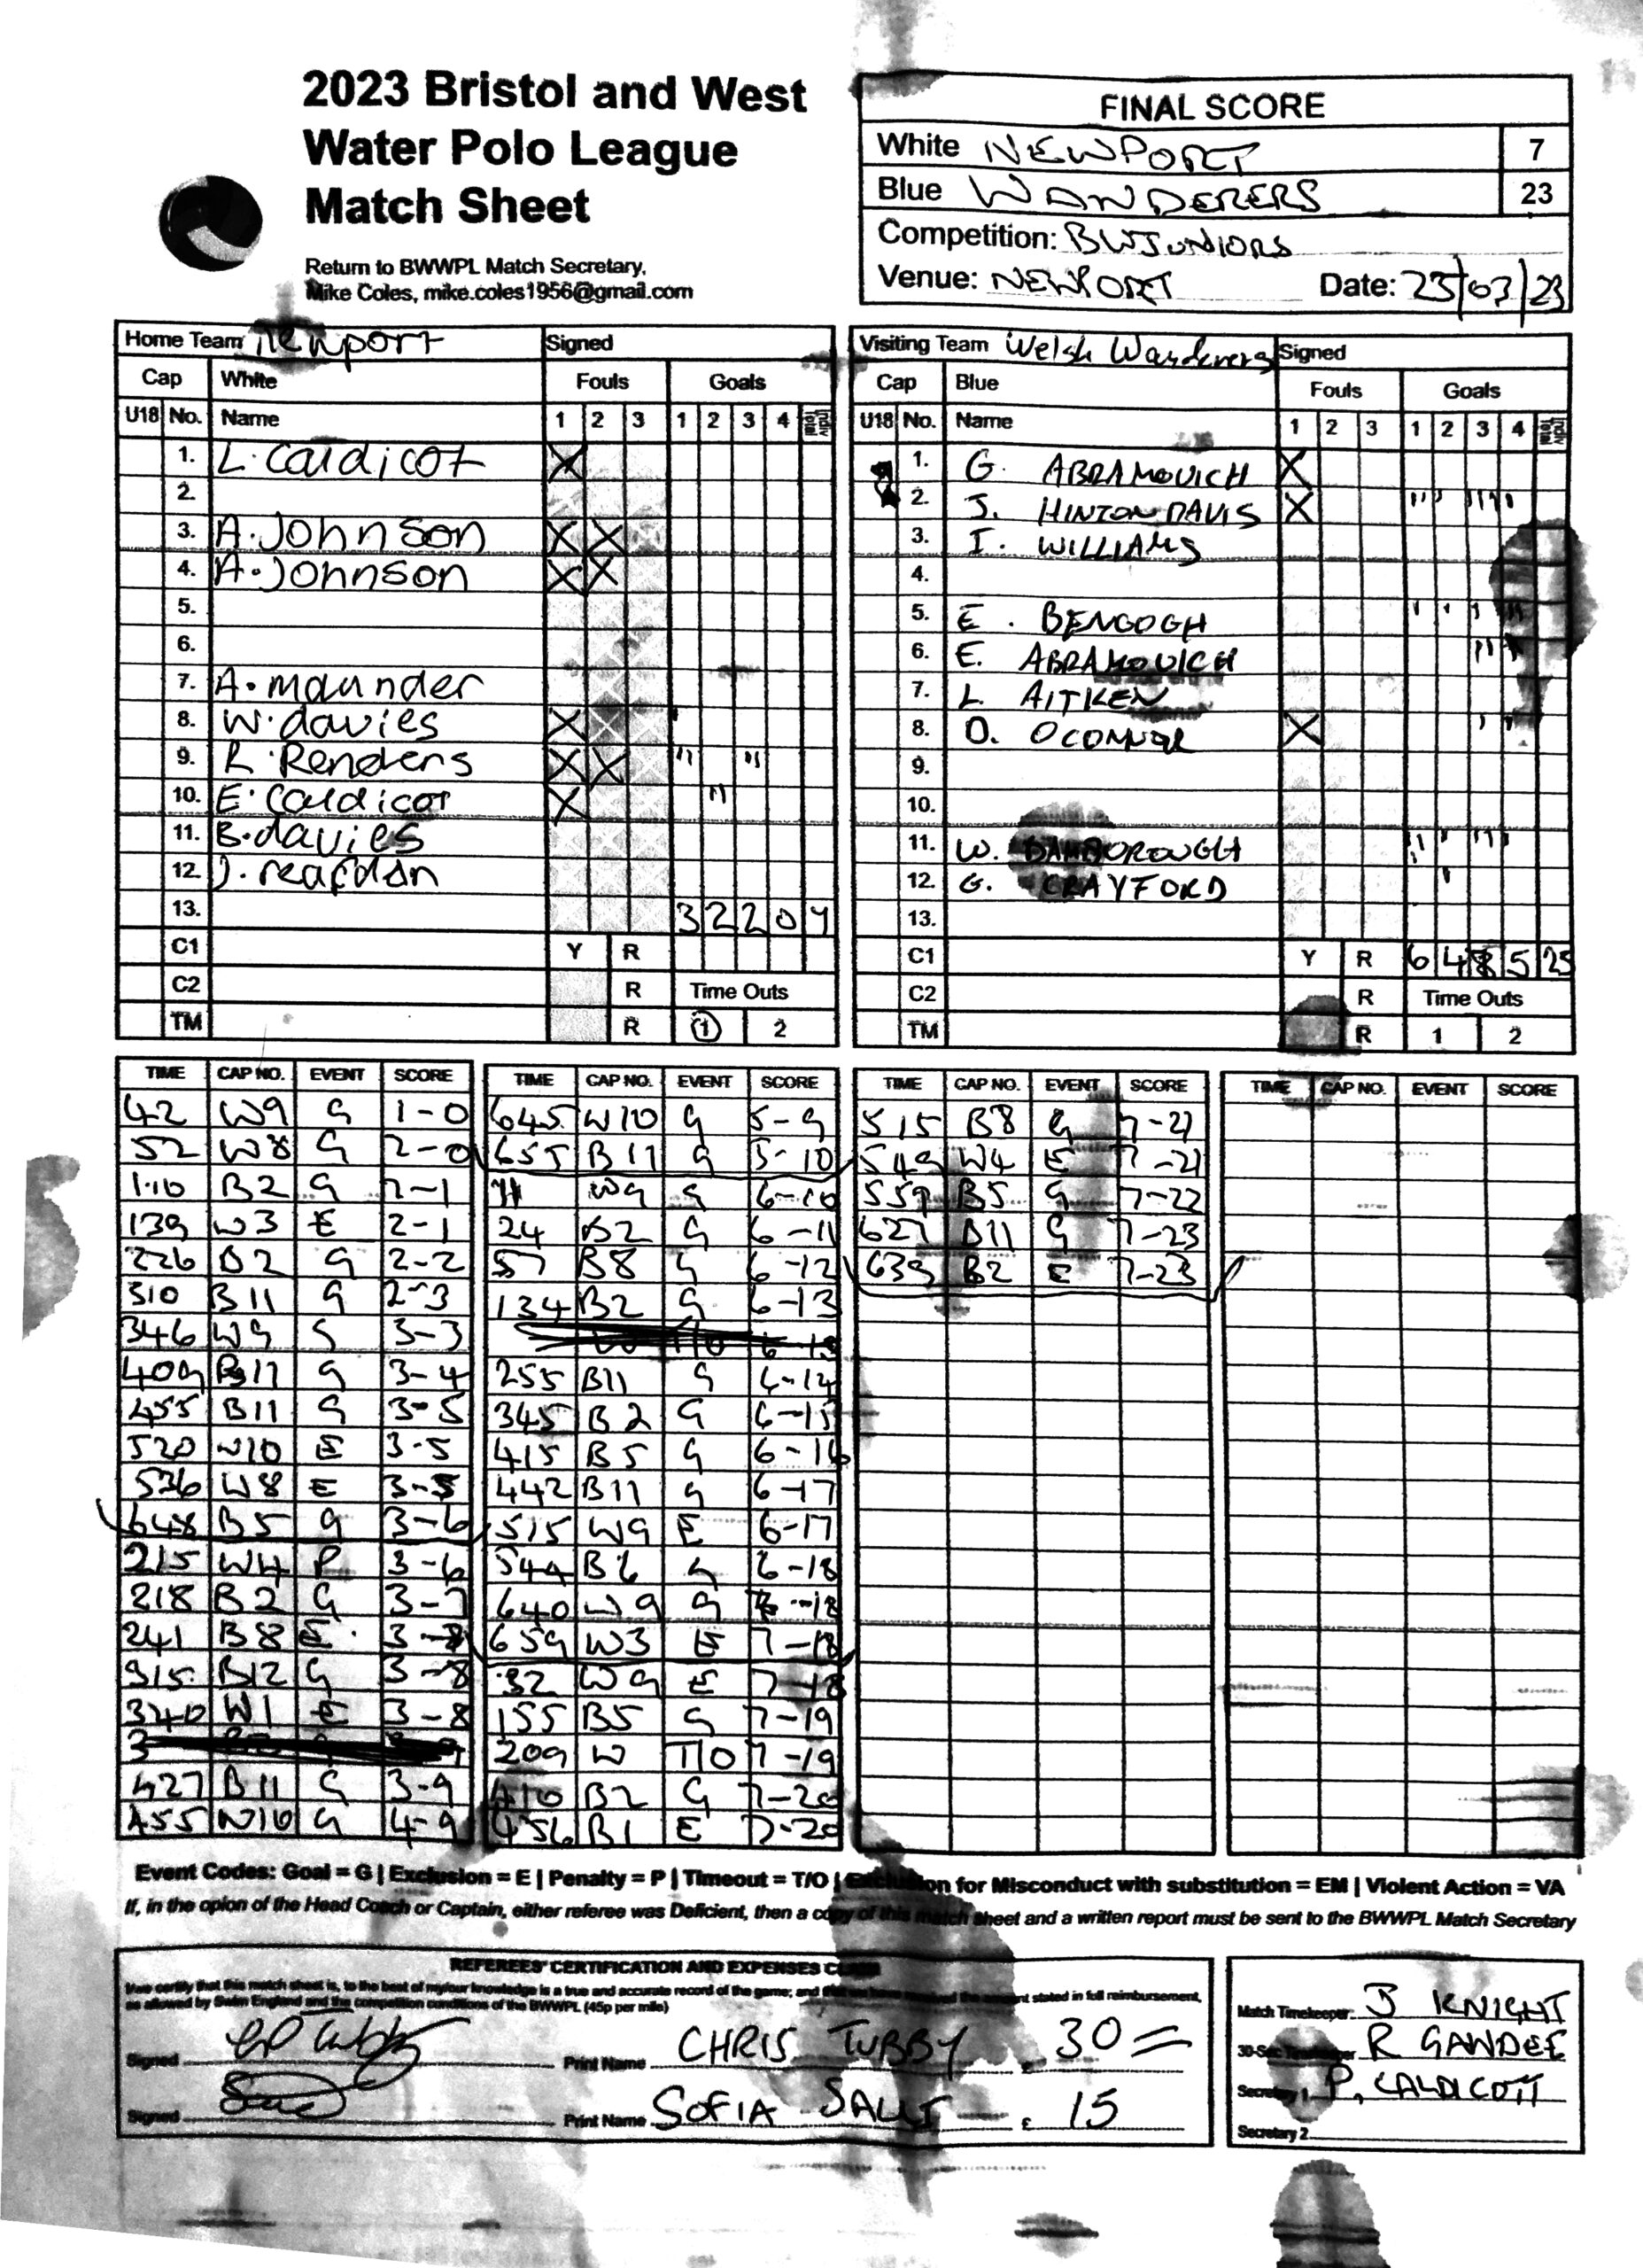 2023 Bristol and West
Water Polo League
Match Sheet
Return to BWWPL Match Secretary,
Mike Coles, mike.coles1956@gmail.com
FINAL SCORE
White NEWPORT 7
Blue WANDERERS 23
Competition: BWJUNIORS
Venue: NEWPORT Date: 25/03/23
Home Team Newport Signed
Cap White Fouls Goals
U18 No. Name 1 2 3 1 2 3 4 Indiv Total
1. L. Caldicot X
2.
3. A. Johnson X X
4. A. Johnson X X
5.
6.
7. A. maunder
8. W. davies X
9. R. Renders X X
10. E. Caldicot X
11. B. davies
12. J. reardan
13. 3 2 2 0
C1 Y R
C2 R Time Outs
TM R 1 2
Visiting Team Welsh Wanderers Signed
Cap Blue Fouls Goals
U18 No. Name 1 2 3 1 2 3 4 Indiv Total
1. G. ABRAMOVICH X
2. J. HINTON DAVIS X
3. I. WILLIAMS
4.
5. E. BENGOGH
6. E. ABRAMOVICH
7. L. AITKEN
8. O. OCONNOR X
9.
10.
11. W. BAMBOROUGH
12. G. CRAYFORD
13.
C1 Y R 6 4 8 5 23
C2 R Time Outs
TM R 1 2
TIME CAP NO. EVENT SCORE
42 W9 G 1-0
52 W8 G 2-0
1.10 B2 G 2-1
139 W3 E 2-1
226 B2 G 2-2
310 B11 G 2-3
346 W9 G 3-3
409 B11 G 3-4
455 B11 G 3-5
520 W10 E 3-5
536 W8 E 3-5
648 B5 G 3-6
215 W4 P 3-6
218 B2 G 3-7
241 B8 E 3-7
315 B12 G 3-8
340 W1 E 3-8
427 B11 G 3-9
455 W10 G 4-9
TIME CAP NO. EVENT SCORE
645 W10 G 5-9
655 B11 G 5-10
11 W9 G 6-10
24 B2 G 6-11
57 B8 G 6-12
134 B2 G 6-13
255 B11 G 6-14
345 B2 G 6-15
415 B5 G 6-16
442 B11 G 6-17
515 W9 E 6-17
544 B6 G 6-18
640 W9 G 7-18
659 W3 E 7-18
32 W9 E 7-18
155 B5 G 7-19
209 W T/O 7-19
410 B2 G 7-20
456 B1 E 7-20
TIME CAP NO. EVENT SCORE
515 B8 G 7-21
549 W4 E 7-21
559 B5 G 7-22
627 B11 G 7-23
639 B2 E 7-23
TIME CAP NO. EVENT SCORE
Event Codes: Goal = G | Exclusion = E | Penalty = P | Timeout = T/O | Exclusion for Misconduct with substitution = EM | Violent Action = VA
If, in the opion of the Head Coach or Captain, either referee was Deficient, then a copy of this match sheet and a written report must be sent to the BWWPL Match Secretary
REFEREES' CERTIFICATION AND EXPENSES CLAIM
I/we certify that this match sheet is, to the best of my/our knowledge is a true and accurate record of the game; and that we have received the amount stated in full reimbursement,
as allowed by Swim England and the competition conditions of the BWWPL (45p per mile)
Signed Print Name CHRIS TUBBY £ 30
Signed Print Name SOFIA £ 15
Match Timekeeper J KNIGHT
30-Sec Timekeeper R GANDEE
Secretary 1 P. CALDICOTT
Secretary 2